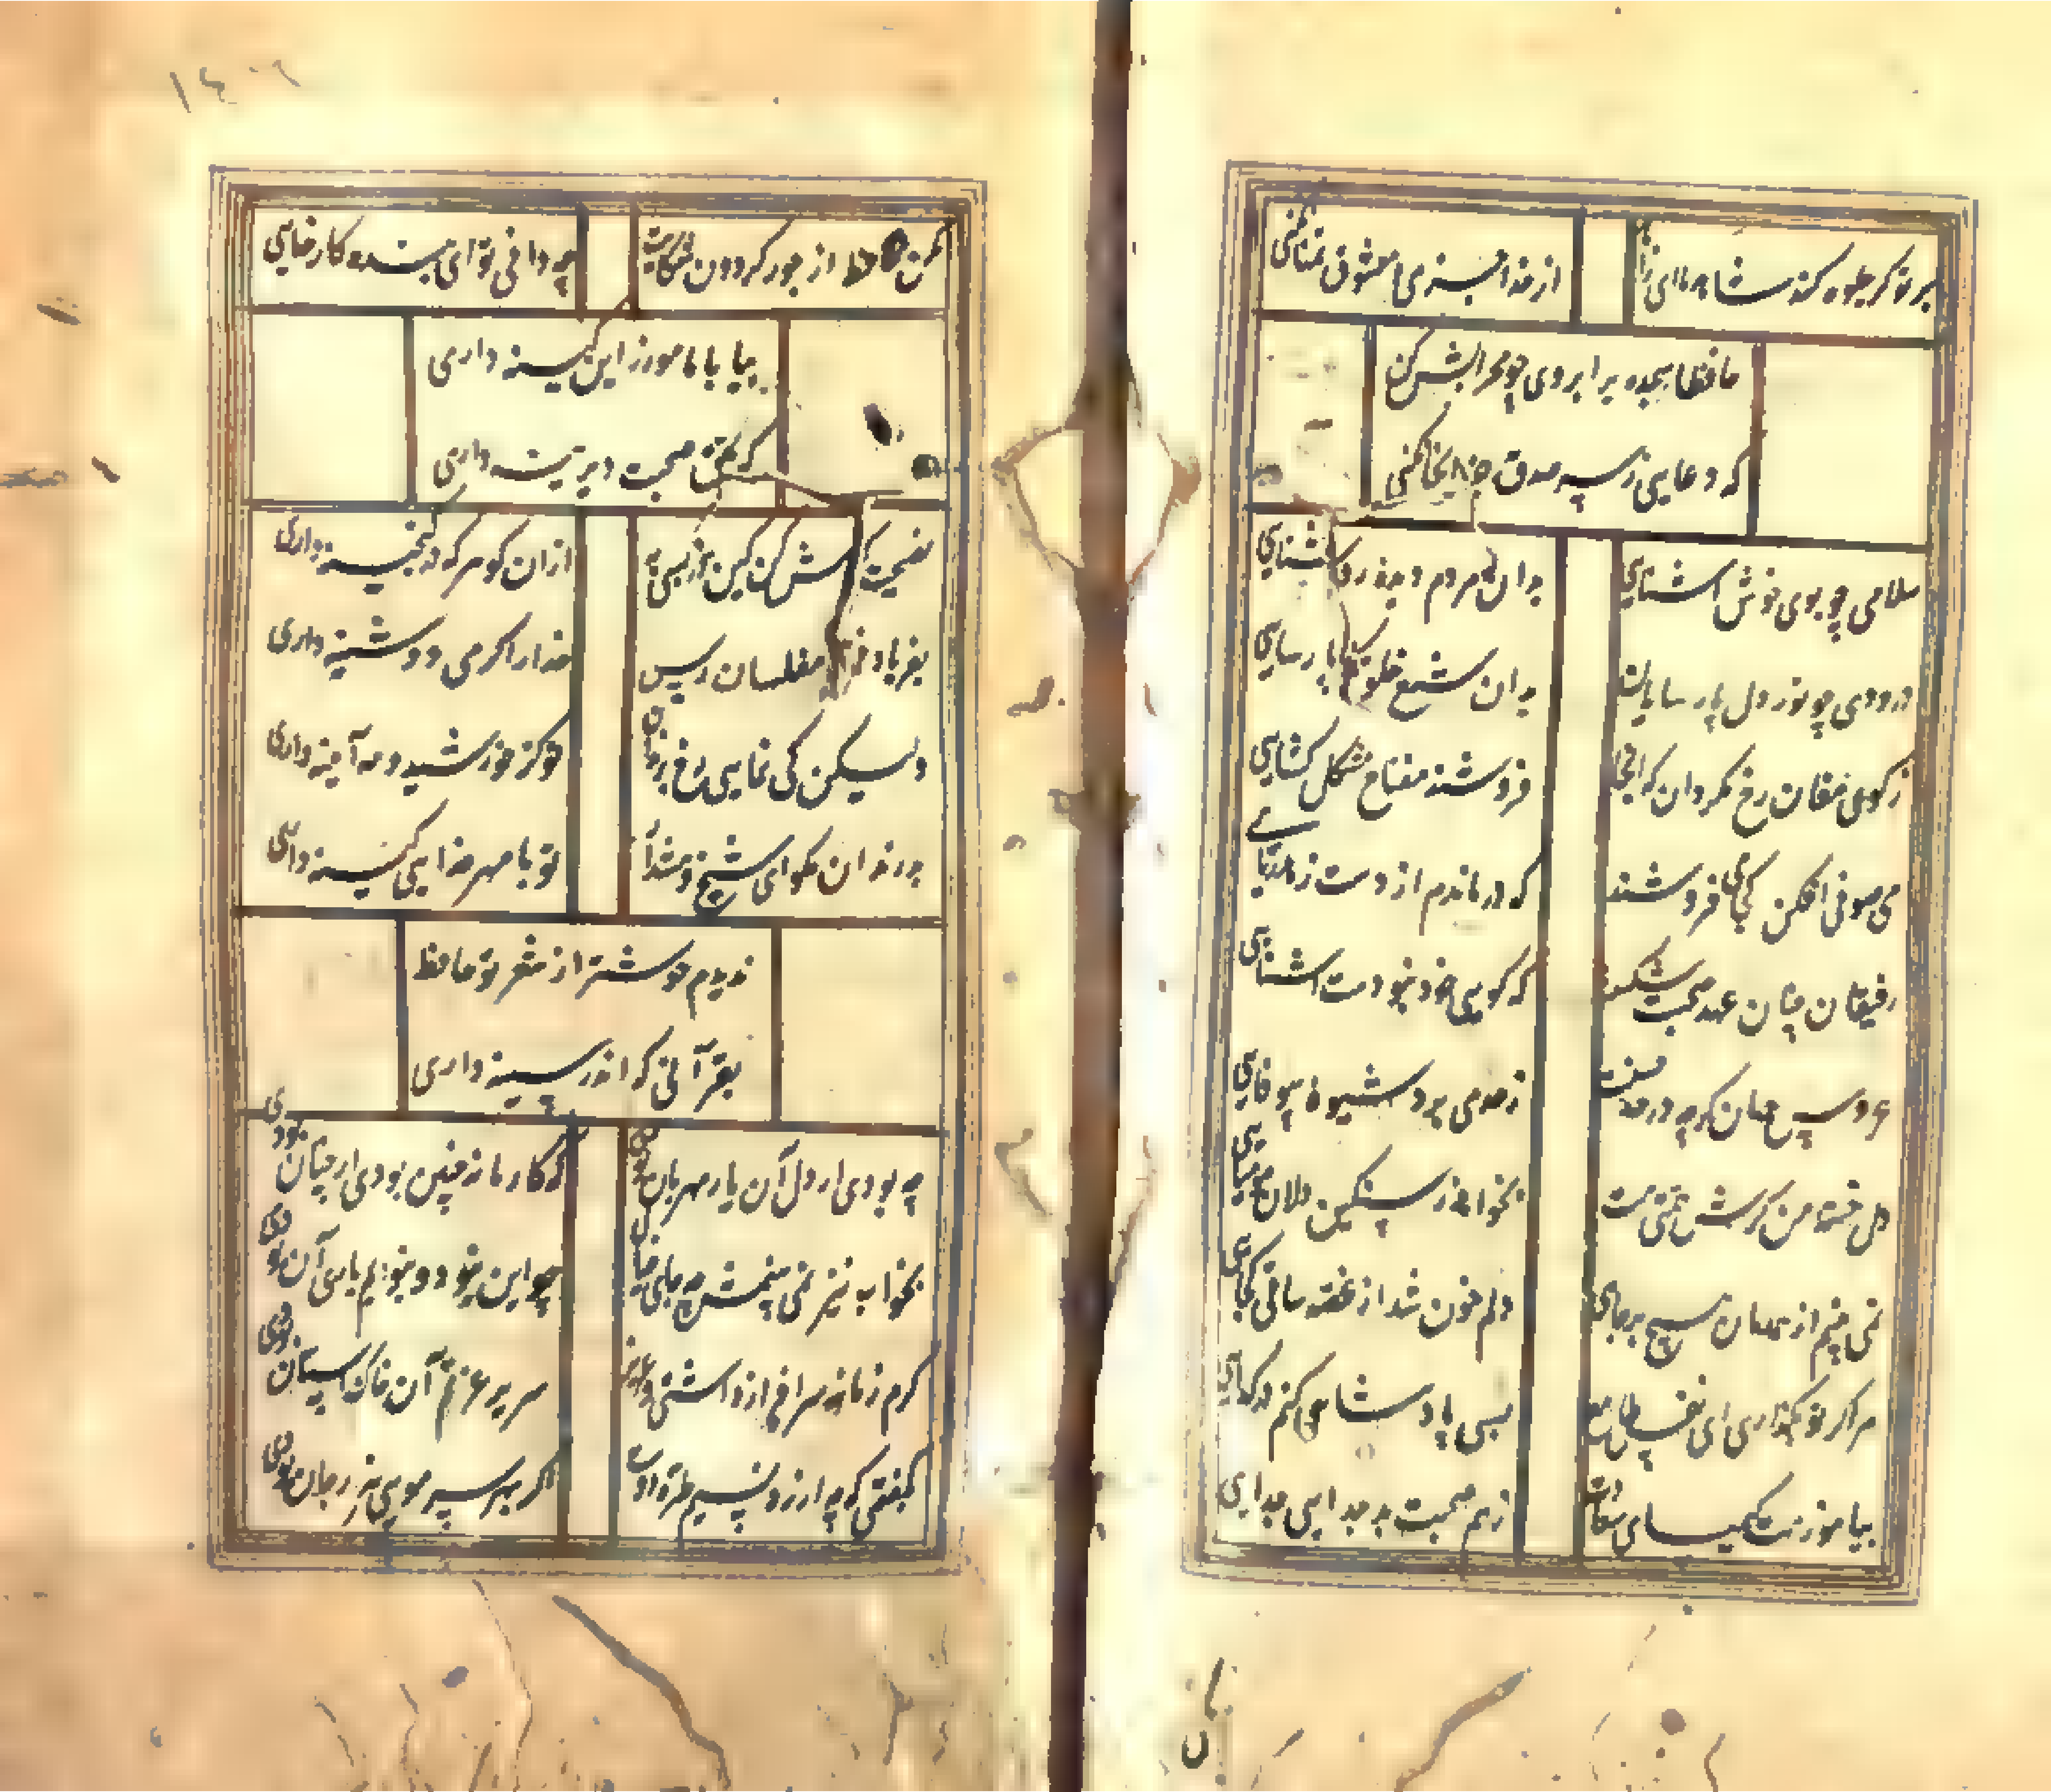 بر تو گر جلوه کند شاهد ما ای زاهد از خدا جز می و معشوق تمنا نکنی
حافظا سجده بر ابروی چو محرابش کن
که دعایی ز سر صدق جز آنجا نکنی
سلامی چو بوی خوش آشنایی بدان مردم دیده روشنایی
درودی چو نور دل پارسایان بدان شمع خلوتگه پارسایی
ز کوی مغان رخ مگردان که آنجا فروشند مفتاح مشکل گشایی
می صوفی افکن کجا می فروشند که در تابم از دست زهد ریایی
رفیقان چنان عهد صحبت شکستند که گویی خود نبودست آشنایی
عروس جهان گرچه در حد حسنست ز حد می برد شیوه بیوفایی
دل خسته من گرش همتی هست نخواهد ز سنگین دلان مومیایی
نمی بینم از همدمان هیچ بر جای دلم خون شد از غصه ساقی کجایی
مرا گر تو بگذاری ای نفس طامع بسی پادشاهی کنم در گدایی
بیاموزمت کیمیای سعادت ز هم صحبت بد جدایی جدایی
مکن حافظ از جور گردون شکایت چه دانی تو ای بنده کار خدایی
بیا با ما مورز این کینه داری
که حق صحبت دیرینه داری
نصیحت گوش کن کین در بسی به از آن گوهر که در گنجینه داری
بفریاد خمار مفلسان رس خدا را گر می دوشینه داری
ولیکن کی نمایی رخ برندان تو کز خورشید و مه آیینه داری
بد رندان مگو ای شیخ و هشدار تو با مهر خدایی کینه داری
ندیدم خوشتر از شعر تو حافظ
بقرآنی که اندر سینه داری
چه بودی ار دل آن یار مهربان بودی که کار ما نه چنین بودی ار چنان بودی
بخواب نیز نمی بینمش چه جای وصال چو این نبود و ندیدیم باری آن بودی
گرم زمانه سرافراز داشتی و عزیز سریر عزتم آن خاک آستان بودی
بگفتمی که چه ارزد نسیم طره دوست اگر بهر سر مویی هزار جان بودی